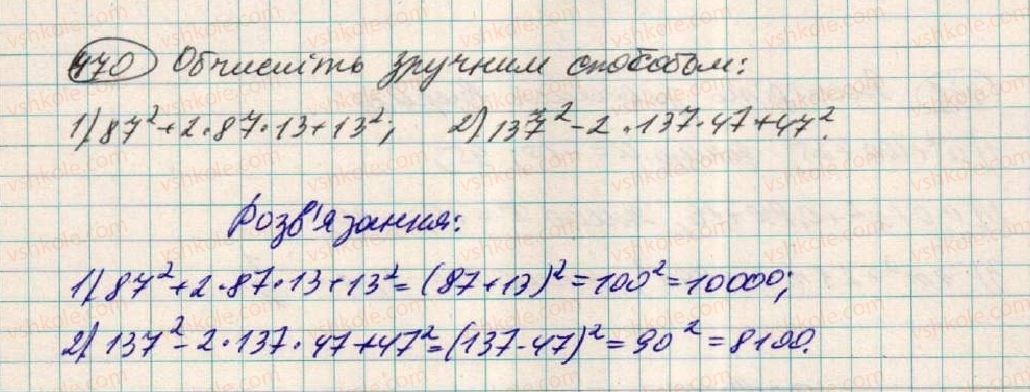 470 Обчисліть зручним способом:
1) 87² + 2·87·13 + 13²; 2) 137² - 2·137·47 + 47².
Розв'язання:
1) 87² + 2·87·13 + 13² = (87 + 13)² = 100² = 10000;
2) 137² - 2·137·47 + 47² = (137 - 47)² = 90² = 8100.